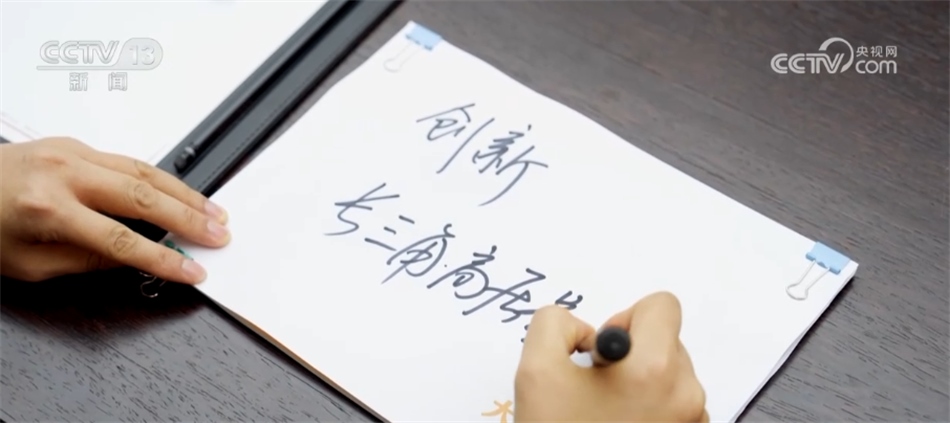 CCTV 13
新闻
央视网
CCTV com
创新
长三角高